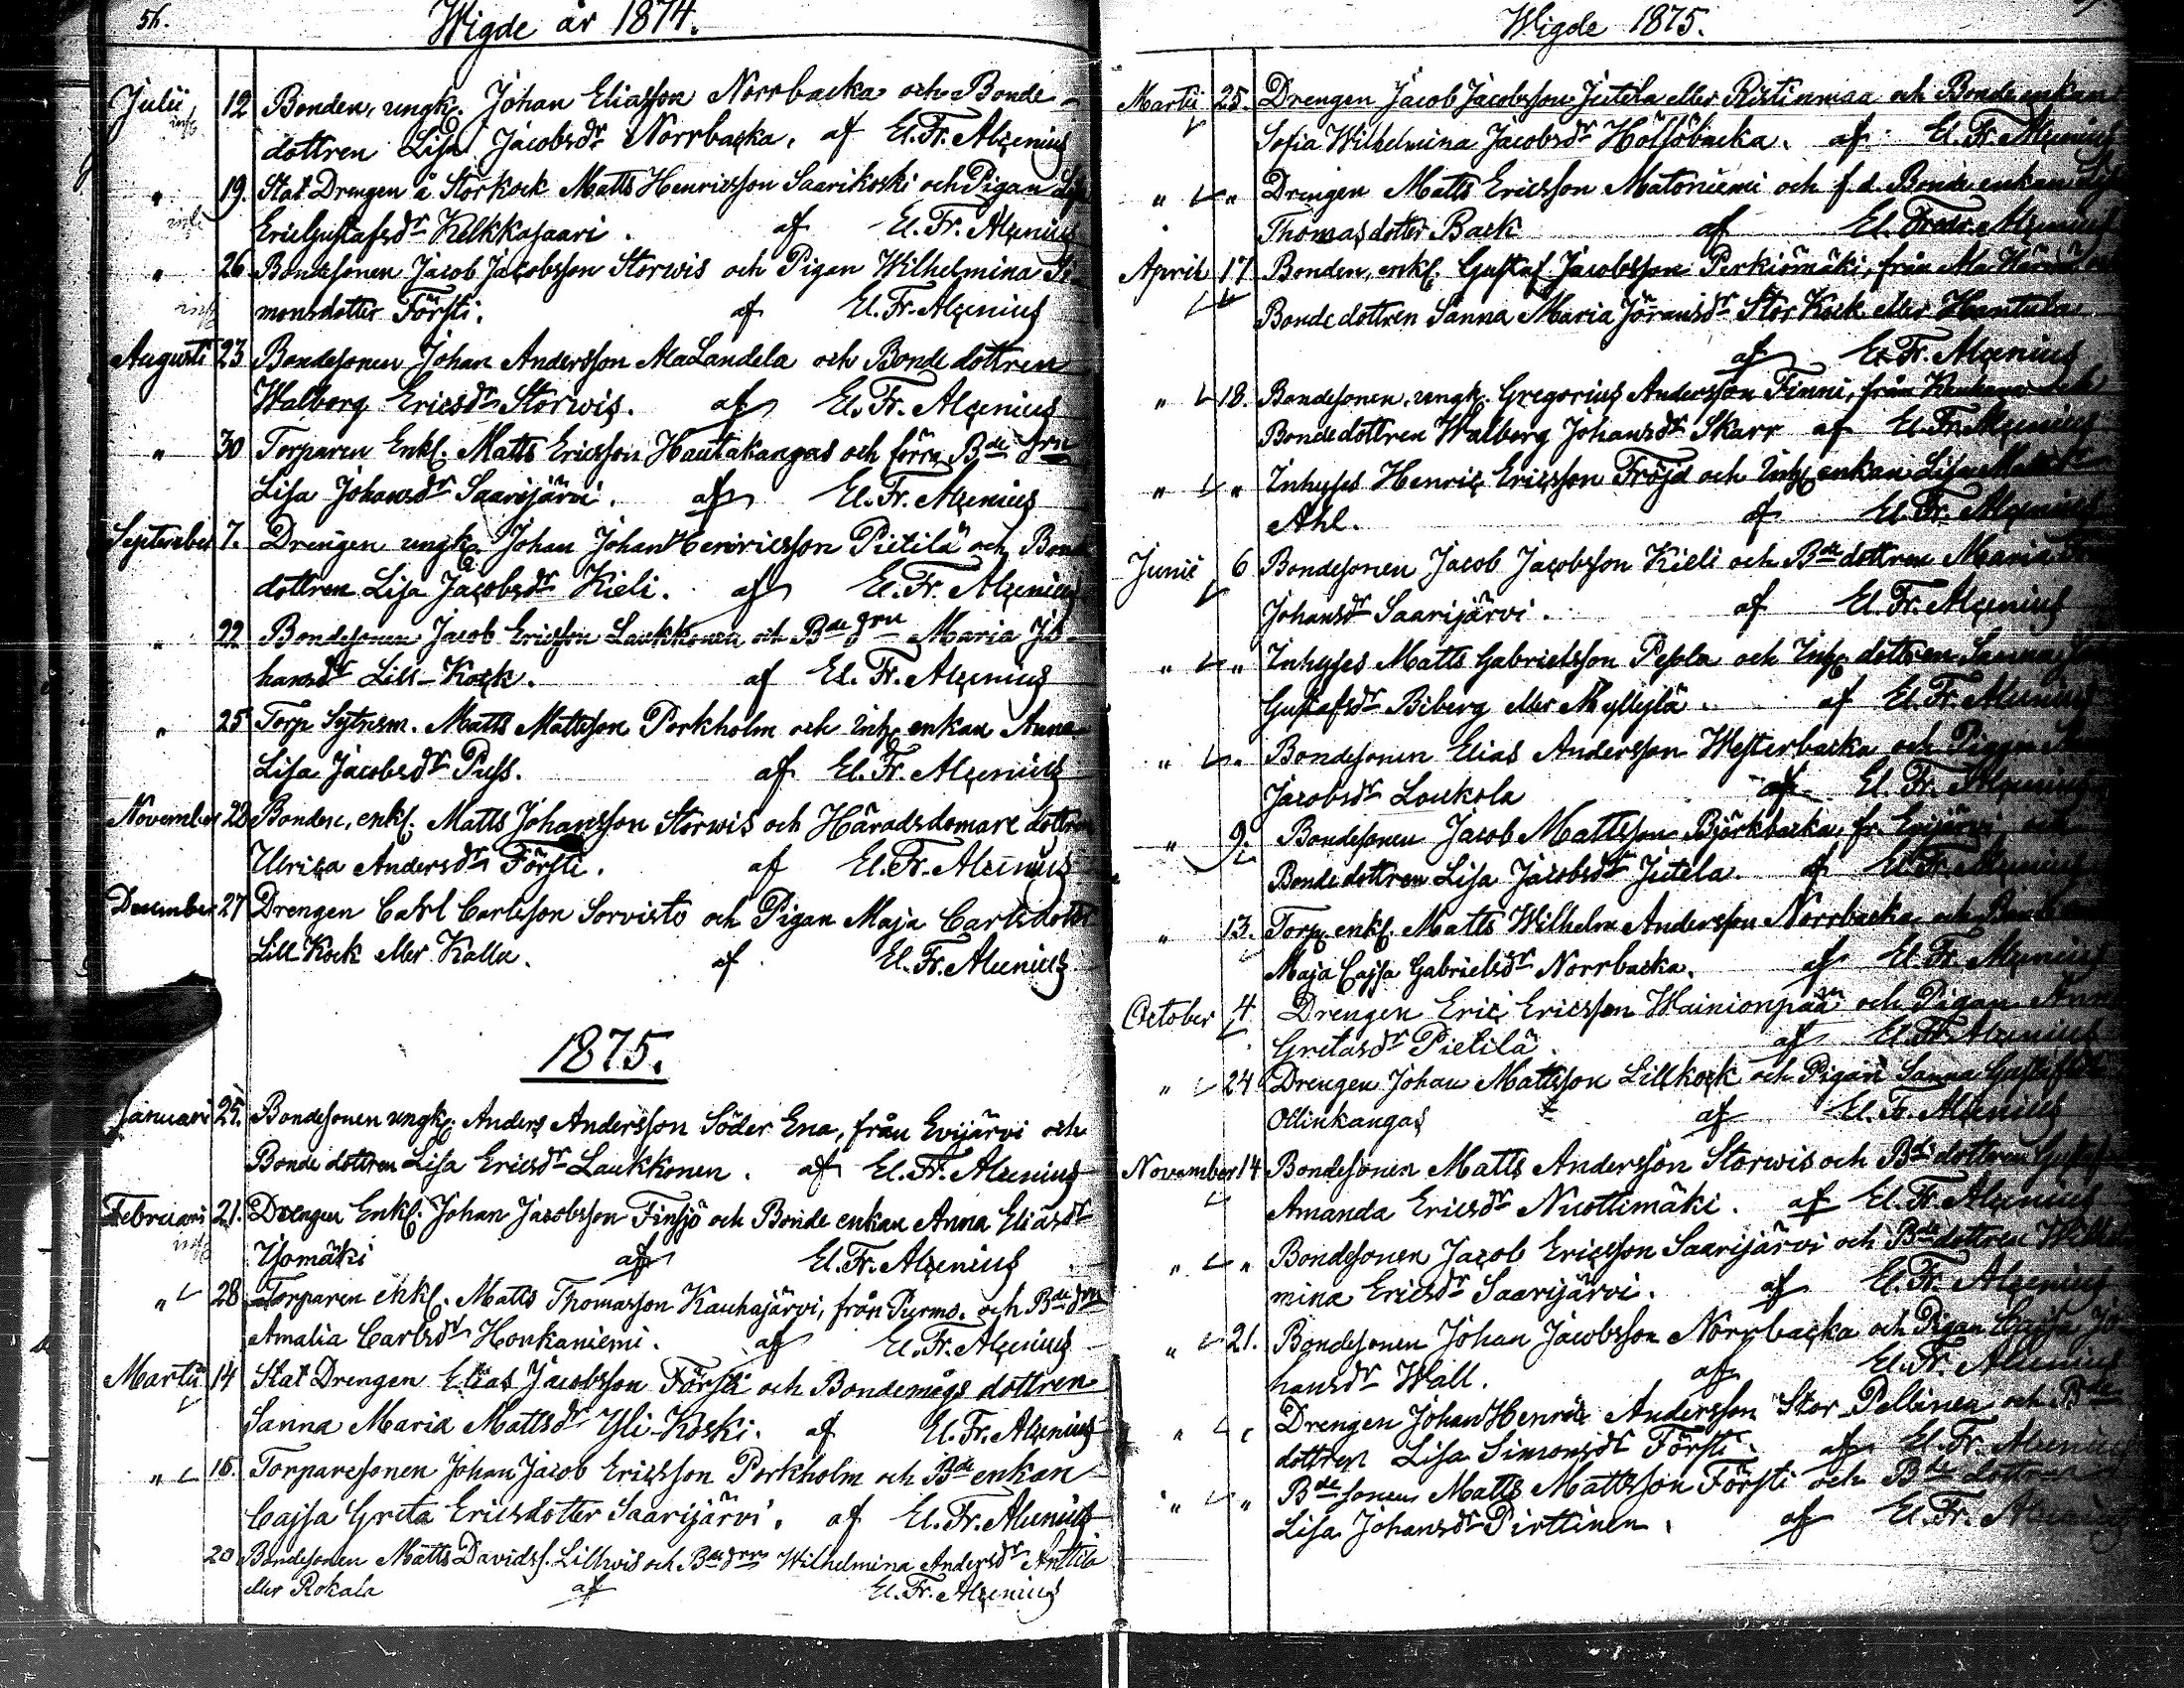 56.
Wigde år 1874.
Julii 12 Bonden, ungk. Johan Eliasson Norrbacka och Bonde-
dottren Lisa Jacobsdr Norrbacka. af El. Fr. Alcenius
" 19. Stat Drengen å Storkock Matts Henricsson Saarikoski och Pigan Lisa
Ericgustafsdr Kelkkasaari. af El. Fr. Alcenius
" 26 Bondesonen Jacob Jacobsson Storwis och Pigan Wilhelmina Si-
monsdotter Försti. af El. Fr. Alcenius
Augusti 23 Bondesonen Johan Andersson AlaLandela och Bonde dottren
Walborg Ericsdr Storwis. af El. Fr. Alcenius
" 30 Torparen Enkl. Matts Ericsson Hautakangas och förra Bde
Lisa Johansdr Saarijärvi. af El. Fr. Alcenius
September 7. Drengen ungk. Johan JohanHenricsson Pietilä och Bonde
dottren Lisa Jacobsdr Kieli. af El. Fr. Alcenius
" 22 Bondesonen Jacob Ericsson Laukkonen och Bde drn Maria Jo-
hansdr Lill-Kock. af El. Fr. Alcenius
" 25 Torp Sytnism. Matts Mattsson Porkholm och inh. enkan Anna
Lisa Jacobsdr Puss. af El. Fr. Alcenius
November 22 Bonden, enkl. Matts Johansson Storwis och Häradsdomare dottren
Ulrica Andersdr Försti. af El. Fr. Alcenius
December 27 Drengen Carl Carlsson Sorvisto och Pigan Maja Carlsdotter
Lill Kock eller Kalla. af El. Fr. Alcenius
1875.
Januari 25. Bondesonen ungk. Anders Andersson Söder Ena, från Evijärvi och
Bonde dottren Lisa Ericsdr Laukkonen. af El. Fr. Alcenius
Februari 21. Drengen Enkl. Johan Jacobsson Finsjö och Bonde enkan Anna Eliasdr
Isomäki af El. Fr. Alcenius
" 28 Torparen enkl. Matts Thomasson Kauhajärvi, från Purmo. och Bde drn
Amalia Carlsdr Honkaniemi. af El. Fr. Alcenius
Martii 14 Stat Drengen Elias Jacobsson Försti och Bondemågs dottren
Sanna Maria Mattsdr Yli-Koski. af El. Fr. Alcenius
" 15. Torparesonen Johan Jacob Ericsson Porkholm och Bde enkan
Cajsa Greta Ericsdotter Saarijärvi. af El. Fr. Alcenius
20 Bondesonen Matts Davidss. Lillwis och Bde drn Wilhelmina Andersdr Anttila
eller Rokala af El. Fr. Alcenius
Wigde 1875.
Martii 25. Drengen Jacob Jacobsson Jutela eller Ristinmaa och Bonde enkan
Sofia Wilhelmina Jacobsdr Höljöbacka. af El. Fr. Alcenius
" " Drengen Matts Ericsson Matoniemi och f.d. Bonde enkan Lisa
Thomasdotter Back af El. Fredr. Alcenius
April 17 Bonden, enkl. Gustaf Jacobsson Perkiömäki, från Ala
Bonde dottren Sanna Maria Jöransdr Stor Kock eller Hantula
af El. Fr. Alcenius
" 18. Bondesonen, ungk. Gregorius Andersson Finni, från
Bonde dottren Walborg Johansdr Skarr af El. Fr. Alcenius
" " Inhyses Henric Ericsson Fröjd och Inh. enkan Lisa
Ahl. af El. Fr. Alcenius
Junii 6 Bondesonen Jacob Jacobsson Kieli och Bde dottren Maria
Johansdr Saarijärvi. af El. Fr. Alcenius
" " Inhyses Matts Gabrielsson Pesola och Inh. dottren Sanna
Gustafsdr Biberg eller Myllylä. af El. Fr. Alcenius
" " Bondesonen Elias Andersson Westerbacka och Pigan
Jacobsdr Loukola af El. Fr. Alcenius
" 9. Bondesonen Jacob Mattsson Björkbacka, fr. Evijärvi, och
Bonde dottren Lisa Jacobsdr Jutela. af El. Fr. Alcenius
" 13. Torp. enkl. Matts Wilhelm Andersson Norrbacka och
Maja Cajsa Gabrielsdr Norrbacka. af El. Fr. Alcenius
October 4 Drengen Eric Ericsson Wainionpää och Pigan
Gretasdr Pietilä. af El. Fr. Alcenius
" 24 Drengen Johan Mattsson Lillkock och Pigan Sanna
Ollinkangas af El. Fr. Alcenius
November 14 Bondesonen Matts Andersson Storwis och Bde dottren Gustaf
Amanda Ericsdr Nuottimäki. af El. Fr. Alcenius
" " Bondesonen Jacob Ericsson Saarijärvi och Bde dottren Wilhel
mina Ericsdr Saarijärvi. af El. Fr. Alcenius
" 21. Bondesonen Johan Jacobsson Norrbacka och Pigan Cajsa Jo
hansdr Wall. af El. Fr. Alcenius
" " Drengen JohanHenric Andersson Stor Pellinen och Bde
dottren Lisa Simonsdr Försti. af El. Fr. Alcenius
" " Bde sonen Matts Mattsson Försti och Bde dottren
Lisa Johansdr Pirttinen. af El. Fr. Alcenius